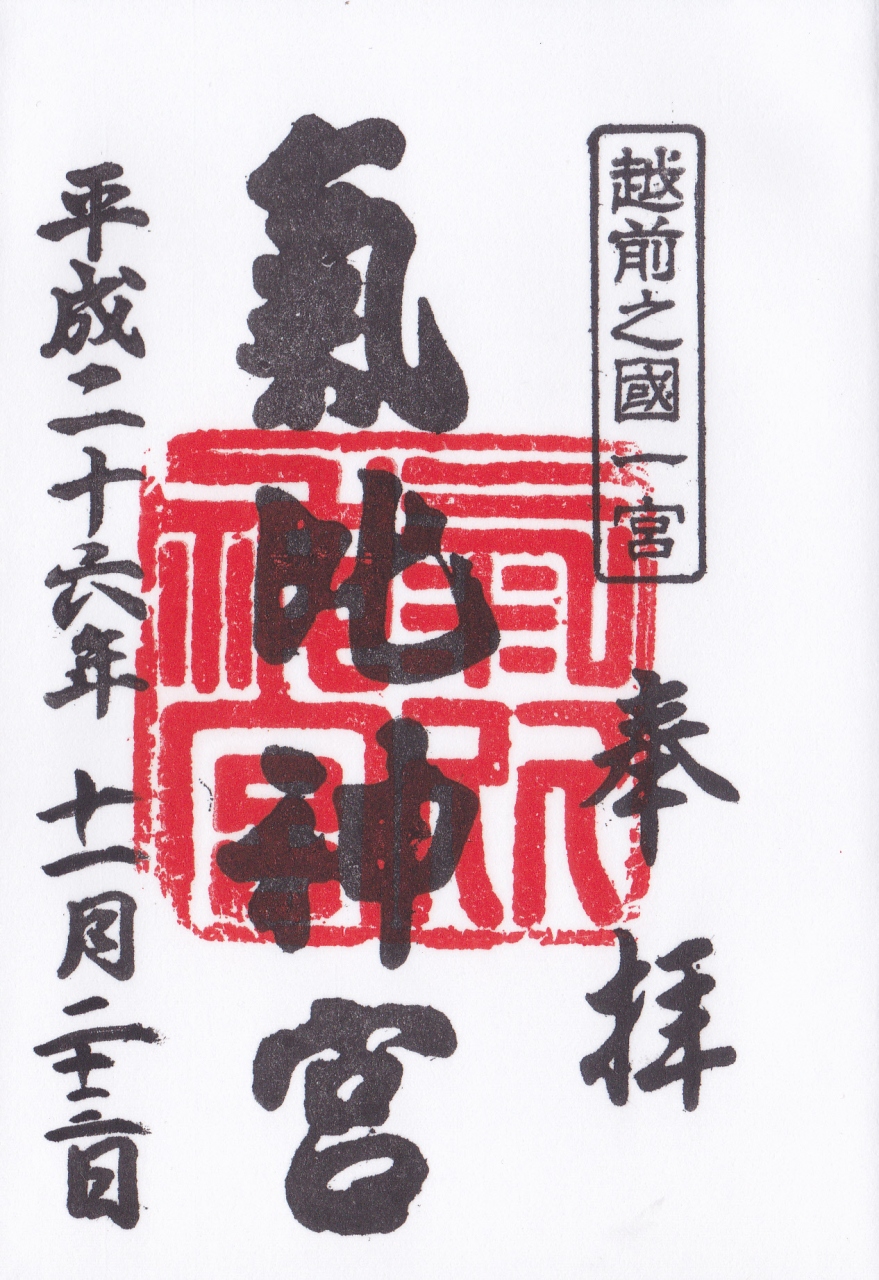 越前之國一宮
奉拝
氣比神宮
平成二十六年 十一月二十三日